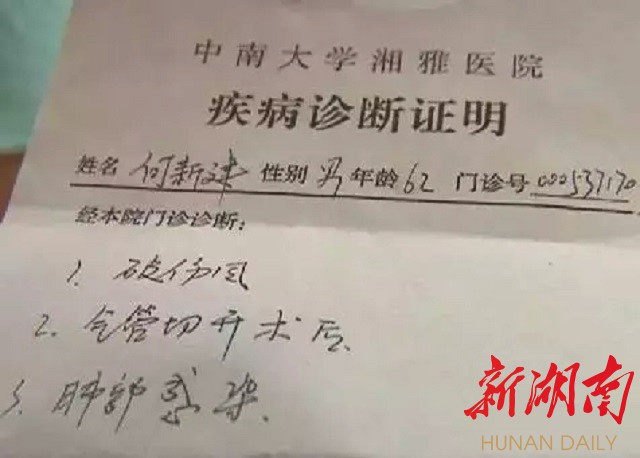 中南大学湘雅医院
疾病诊断证明
姓名 何新建 性别 男 年龄 62 门诊号 000537170
经本院门诊诊断:
1. 破伤风
2. 气管切开术后.
3. 肺部感染.
新湖南
HUNAN DAILY